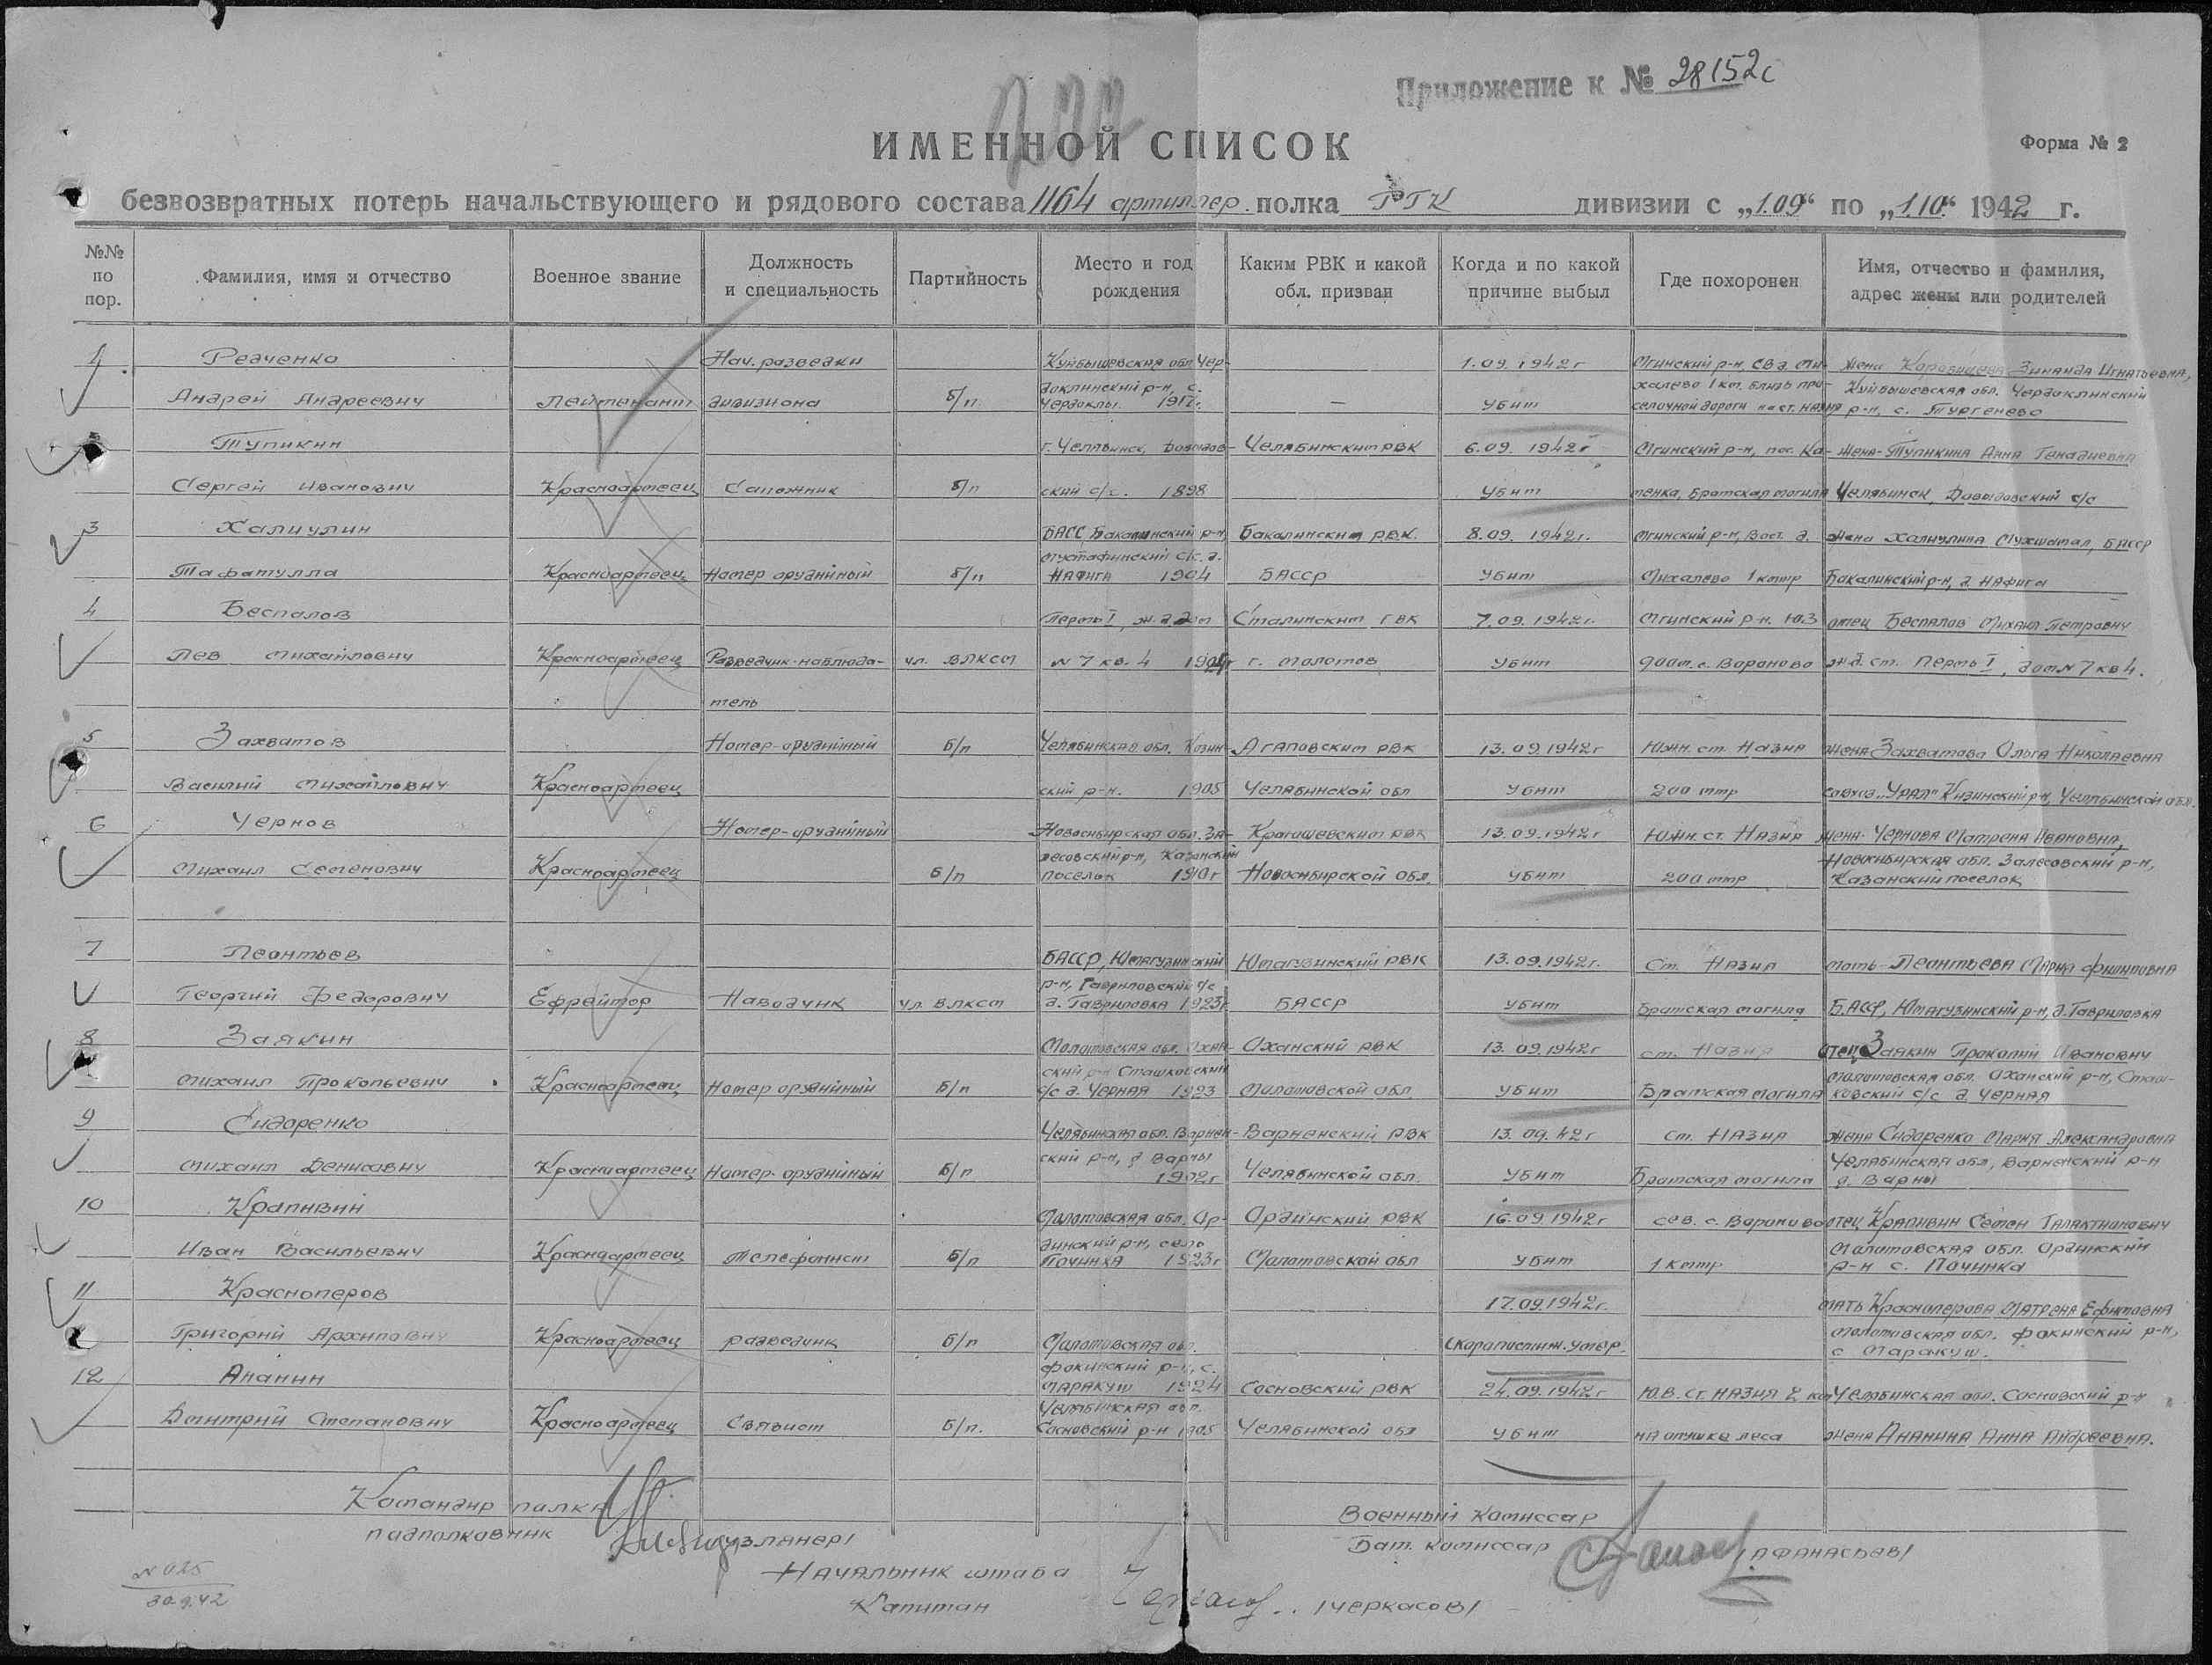 Приложение к № 28152с
ИМЕННОЙ СПИСОК
Форма № 2
безвозвратных потерь начальствующего и рядового состава 1164 артиллер. полка РГК дивизии с „1.09“ по „1.10“ 1942 г.
№№ по пор. Фамилия, имя и отчество Военное звание Должность и специальность Партийность Место и год рождения Каким РВК и какой обл. призван Когда и по какой причине выбыл Где похоронен Имя, отчество и фамилия, адрес жены или родителей
1 Редченко Нач. разведки Куйбышевская обл. Чер- 1.09.1942г Мгинский р-н, СВ д. Ми- жена Зинаида Игнатьевна,
даклинский р-н, с. халево 1 км. близь про- Куйбышевская обл. Чердаклинский
Андрей Андреевич Лейтенант дивизиона б/п Чердаклы. 1917г. — убит селочной дороги на ст. Назия р-н, с. Тургенево
2 Тупикин г. Челябинск, Давыдов- Челябинским РВК 6.09.1942г Мгинский р-н, пос. Ка- жена-Тупикина Анна Генадиевна
Сергей Иванович Красноармеец Сапожник б/п ский с/с. 1898 убит менка, Братская могила Челябинск, Давыдовский с/с
3 Халиулин БАСС, Бакалинский р-н, Бакалинским РВК. 8.09.1942г. Мгинский р-н, Вост. д. жена Халиулина БАССР
Мустафинский с/с. д.
Тафатулла Красноармеец Номер орудийный б/п Нафига 1904 БАССР убит Михалево 1 кмтр Бакалинский р-н, д. Нафига
4 Беспалов Пермь I, ж.д. дом Сталинским ГВК 7.09.1942г. Мгинский р-н. Ю.З отец Беспалов Михаил Петрович
Лев Михайлович Красноармеец Разведчик-наблюда- чл. ВЛКСМ №7 кв. 4 г. Молотов убит 900м. с. Вороново ж.д. ст. Пермь I, дом №7 кв 4.
тель
5 Захватов Номер-орудийный б/п Челябинская обл. Кизин- Агаповским РВК 13.09.1942г Южн. ст. Назия жена Захватова Ольга Николаевна
Василий Михайлович Красноармеец ский р-н. 1905 Челябинской обл убит 200 мтр совхоз „Урал“ Кизинский р-н, Челябинской обл.
6 Чернов Номер-орудийный Новосибирская обл. За- РВК 13.09.1942г Южн. ст. Назия жена-Чернова Матрена Ивановна,
лесовский р-н, Казанский Новосибирская обл. Залесовский р-н,
Михаил Семенович Красноармеец б/п поселок 1910г Новосибирской обл. убит 200 мтр Казанский поселок
7 Леонтьев БАССР, Юмагузинский Юмагузинский РВК 13.09.1942г. Ст. Назия мать-Леонтьева Мария Филипповна
р-н, Гавриловский с/с
Георгий Федорович Ефрейтор Наводчик чл. ВЛКСМ д. Гавриловка 1923г БАССР убит Братская могила БАССР, Юмагузинский р-н, д. Гавриловка
8 Заякин Молотовская обл. Охан- Оханский РВК 13.09.1942г ст. Назия отец Заякин Прокопий Иванович
ский р-н Сташковский Молотовская обл. Оханский р-н, Сташ-
Михаил Прокопьевич Красноармеец Номер орудийный б/п с/с д. Черная 1923 Молотовской обл убит Братская могила ковский с/с д. Черная
9 Сидоренко Челябинская обл. Варнен- Варненский РВК 13.09.42г ст. Назия жена Сидоренко Мария Александровна
ский р-н, д Варны Челябинская обл, Варненский р-н
Михаил Денисович Красноармеец Номер-орудийный б/п 1902г Челябинской обл. убит Братская могила д. Варны
10 Крапивин Молотовская обл. Ор- Ординский РВК 16.09.1942г сев. с. Вороново отец Крапивин Семен
динский р-н, село Молотовская обл. Ординский
Иван Васильевич Красноармеец телефонист б/п Починка 1923г Молотовской обл убит 1 кмтр р-н с. Починка
11 Красноперов 17.09.1942г. мать Красноперова Матрена Ефимовна
Молотовская обл. Фокинский р-н,
Григорий Архипович Красноармеец разведчик б/п Молотовская обл. скоропостиж. умер. с Маракуш.
Фокинский р-н, с.
12 Ананин Маракуш 1924 Сосновский РВК 24.09.1942г Ю.В. ст. Назия 2 км Челябинская обл. Сосновский р-н
Челябинская обл.
Дмитрий Степанович Красноармеец Связист б/п. Сосновский р-н 1905 Челябинской обл убит на опушке леса жена Ананина Анна Андреевна.
Командир полка Военный комиссар
подполковник /узлянер/ Бат. комиссар /Афанасьев/
Начальник штаба
Капитан /Черкасов/
№ 025
30.9.42